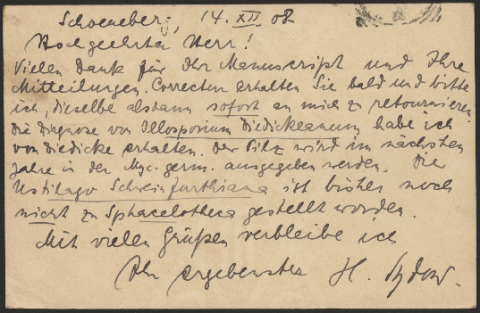 Schoeneberg, 14. XII 08
Hochgeehrter Herr!
Vielen Dank für Ihr Manuscript und Ihre
Mitteilungen. Correctur erhalten Sie bald und bitte
ich, dieselbe alsdann sofort an mich zu retournieren.
Die Diagnose von Illosporium Diedickeanum habe ich
von Diedicke erhalten. Der Pilz wird im nächsten
Jahre in der Myc. germ. ausgegeben werden. Die
Ustilago Schweinfurthiana ist bisher noch
nicht zu Sphacelotheca gestellt worden.
Mit vielen Grüßen verbleibe ich
Ihr ergebenster H. Sydow.